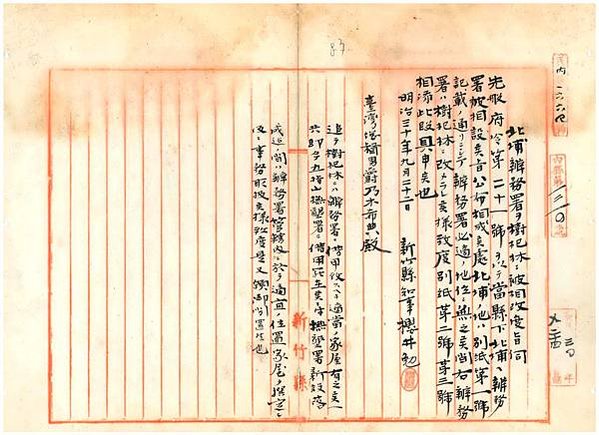 83
内一六六八
三一〇
北埔辦務署ヲ樹杞林ニ被相改度旨伺
先般府令第二十一號ヲ以テ當縣下北埔ニ辦務
署被相設候旨公布相成候處北埔ノ地ハ別紙第一號
記載ノ通リニシテ辦務署必適ノ地位ニ無之候尚右辦務
署ハ樹杞林ニ改メラレ候樣致度別紙第二號第三號
相添此段具申候也
明治三十年九月二十二日
新竹縣知事櫻井勉
臺灣總督男爵乃木希典殿
追テ樹杞林ニハ辦務署ニ借用致スヘキ適當ノ家屋有之候
共即今五指山撫墾署ニ借用罷在候ニ付撫墾署新設落
成迄ノ間ハ辦務署管轄内ニ於テ適宜ノ位置ニ家屋ヲ撰定シ
事務取扱候樣致度是又
新竹縣